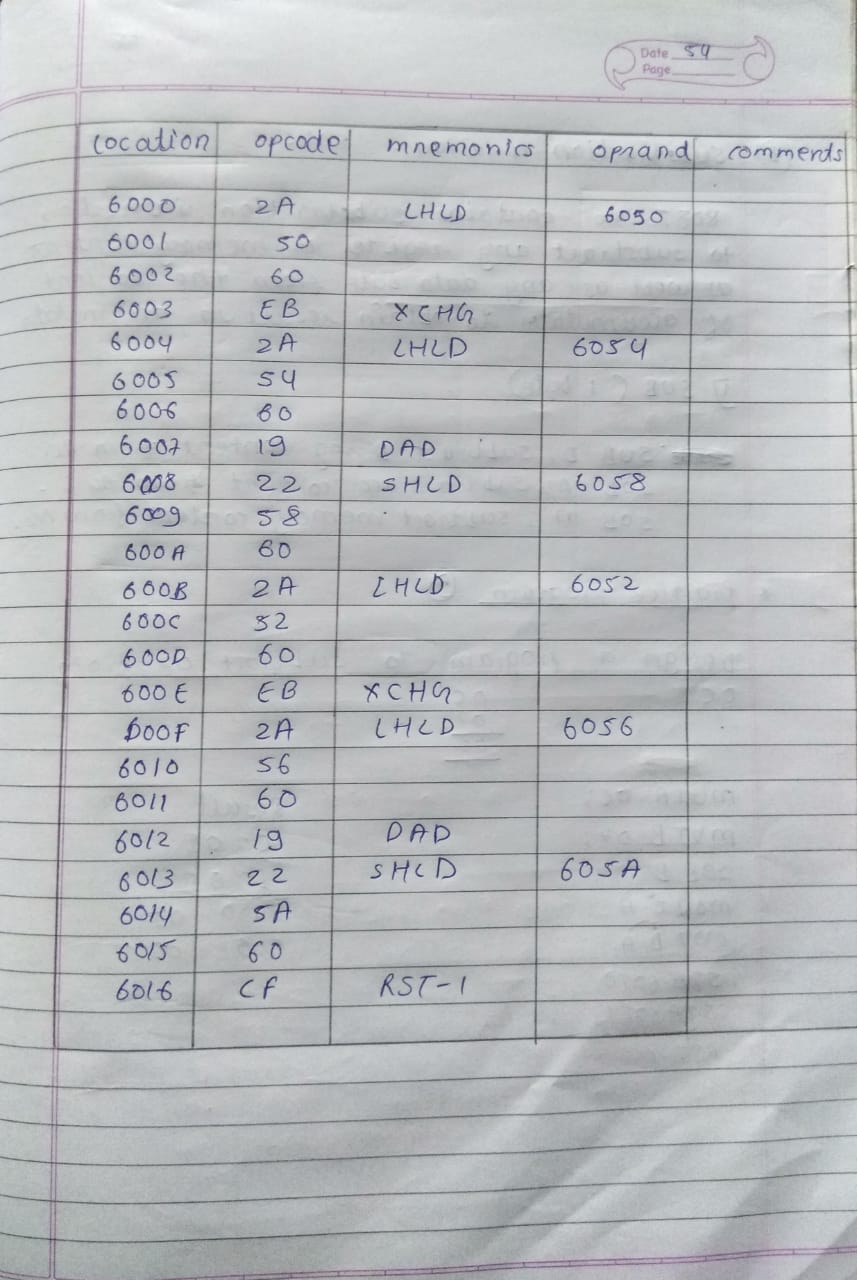 Date 54
Page
location opcode mnemonics oprand comments
6000 2A LHLD 6050
6001 50
6002 60
6003 EB XCHG
6004 2A LHLD 6054
6005 54
6006 60
6007 19 DAD
6008 22 SHLD 6058
6009 58
600A 60
600B 2A LHLD 6052
600C 52
600D 60
600E EB XCHG
600F 2A LHLD 6056
6010 56
6011 60
6012 19 DAD
6013 22 SHLD 605A
6014 5A
6015 60
6016 CF RST-1